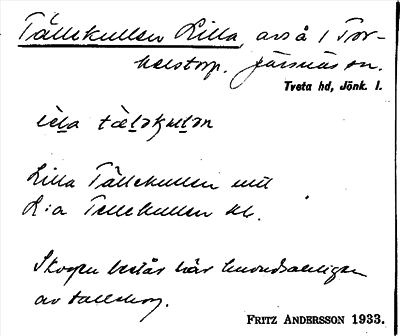 Tällekullen Lilla, avs å 1 Tor-
kelstorp. Järsnäs sn.
Tveta hd, Jönk. l.
tæləkulən
Lilla Tällekullen
L:a Tellekullen
Skogen består här huvudsakligen
av tallskog.
FRITZ ANDERSSON 1933.